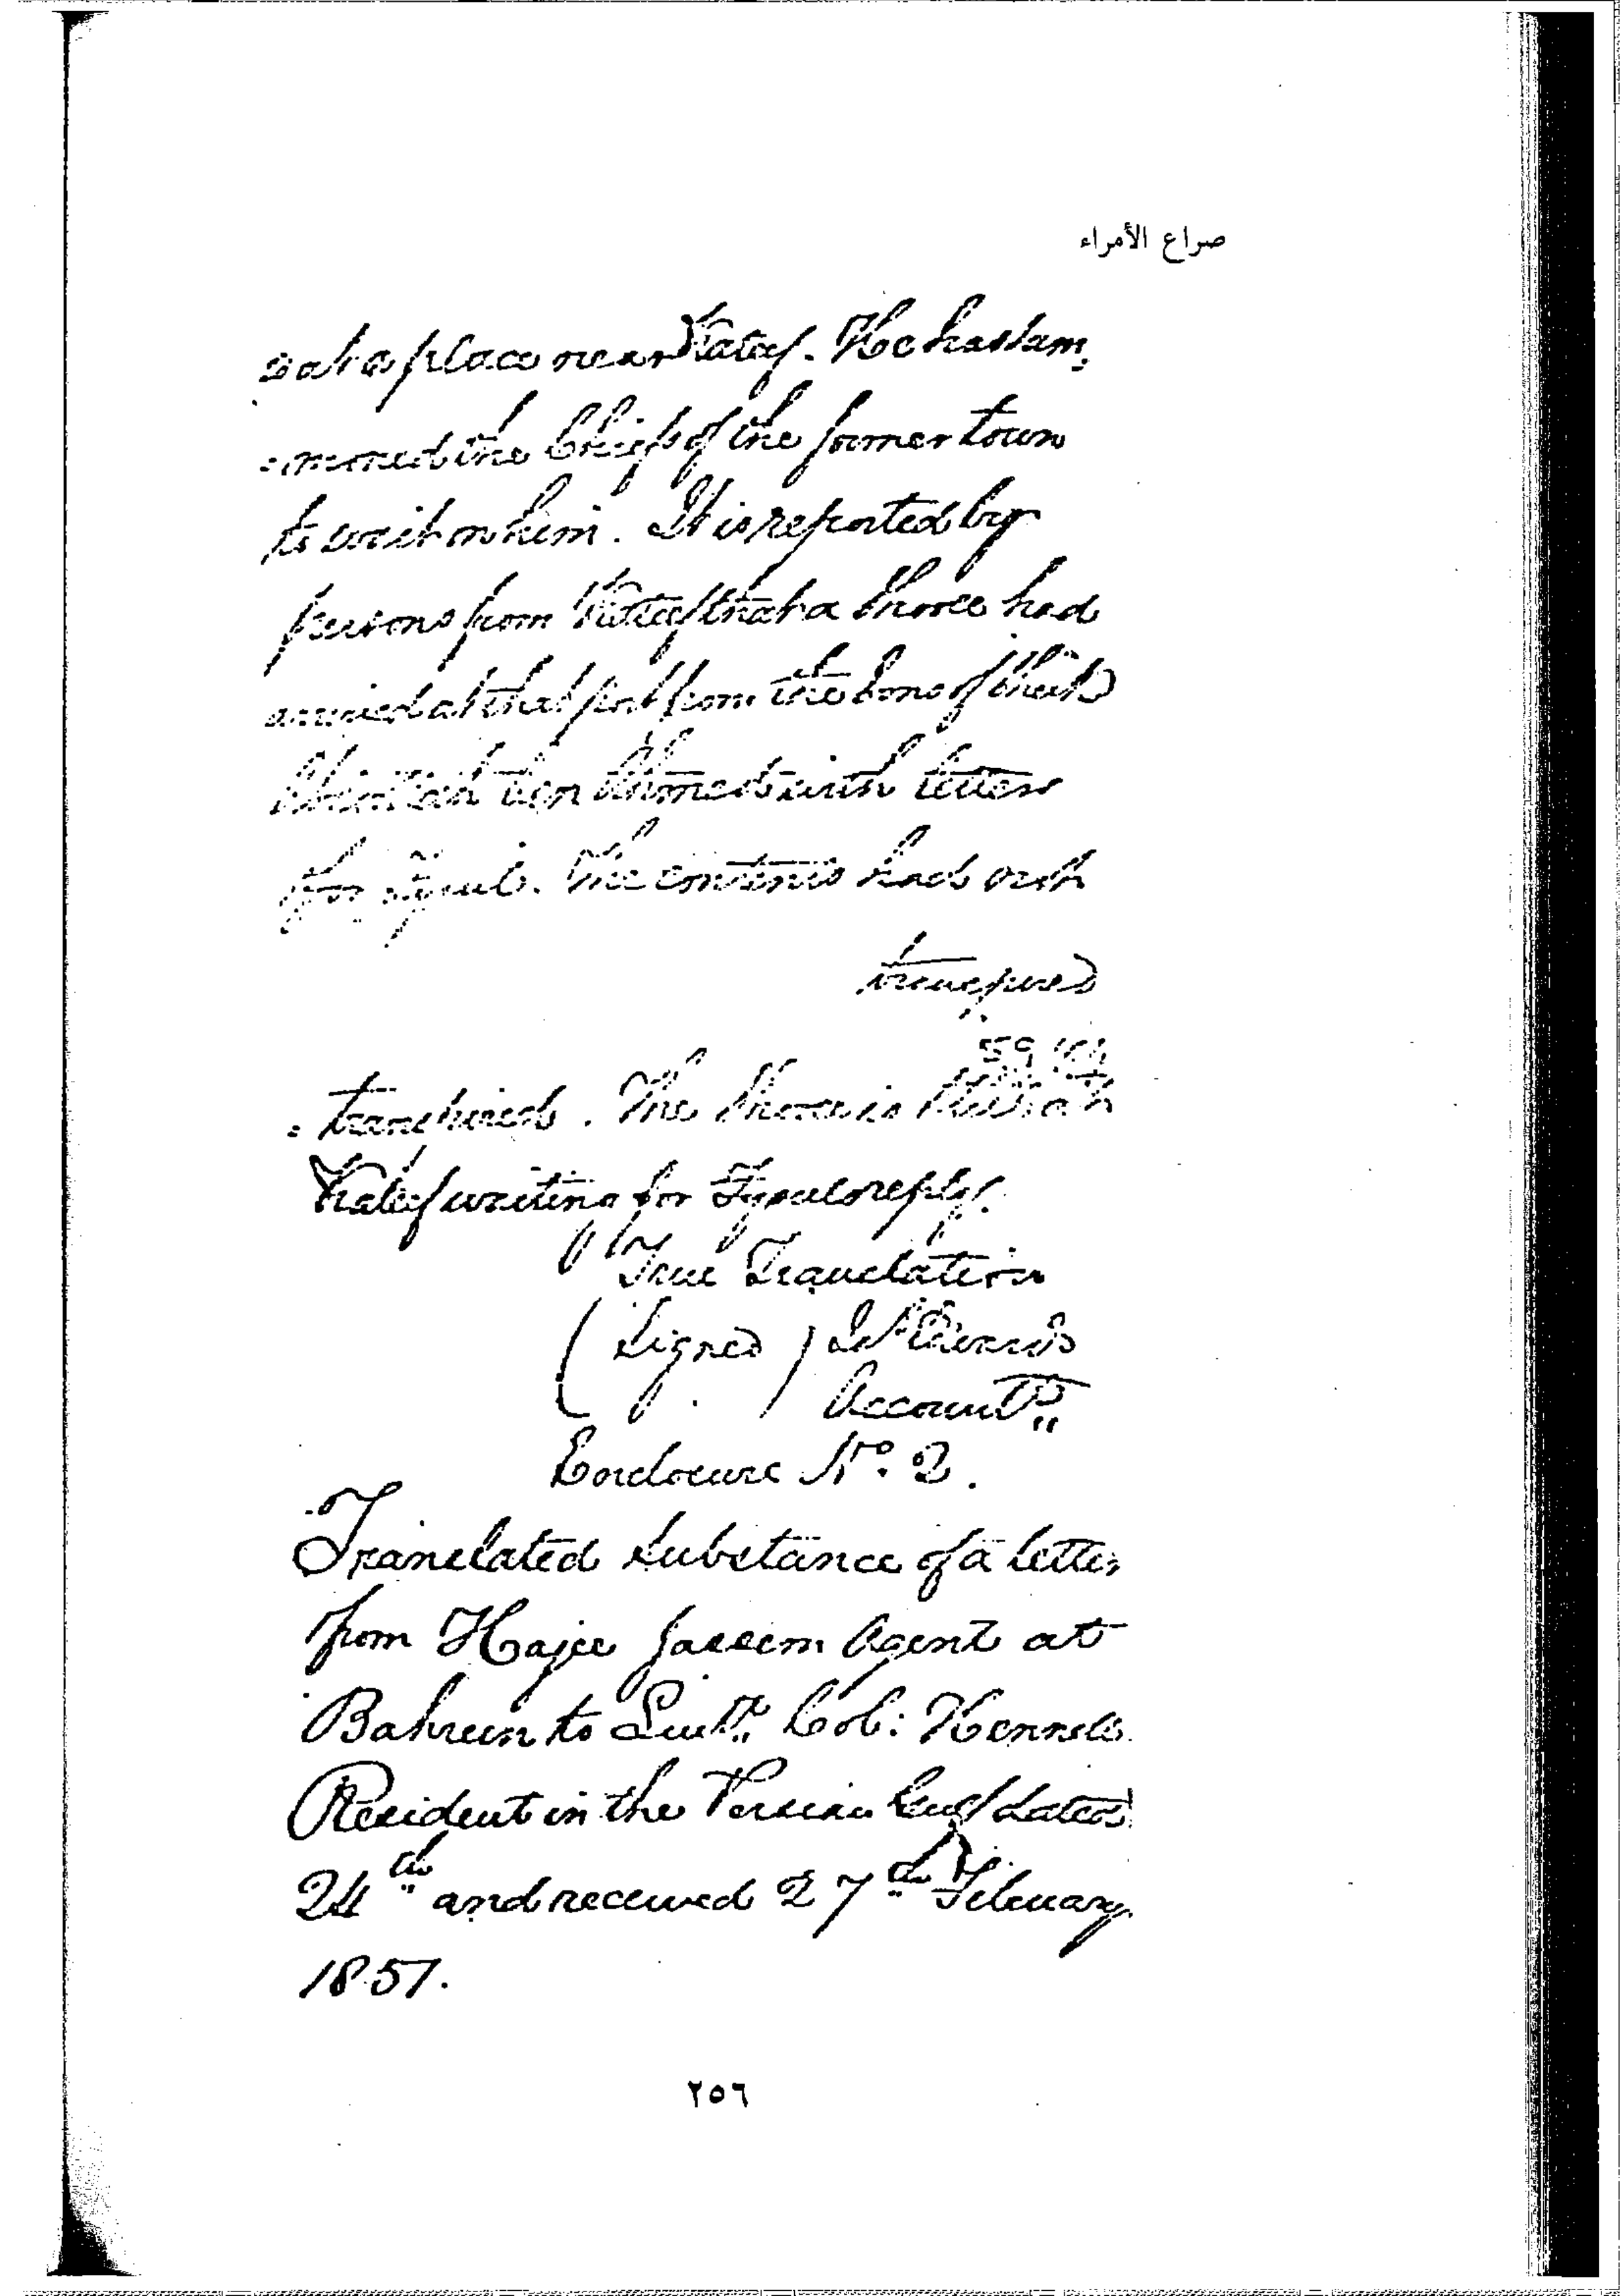 صراع الأمراء
at a place near Kateef. He has sum,
=moned the Chief of the former town
to wait on him. It is reported by
persons from Kateef that a Shooee had
arrived at that port from the Sons of
bin Ahmed with letters
for Fysul. The contents had not
transpired
59
=transpired. The is still at
Kateef waiting for Fysul's reply.
True Translation
(Signed)
Account.
Enclosure No. 2.
Translated substance of a letter
from Hajee Jassem Agent at
Bahrein to Lieutt. Col: Hennell
Resident in the Persian Gulf dated
24th and received 27th February
1851.
٢٥٦